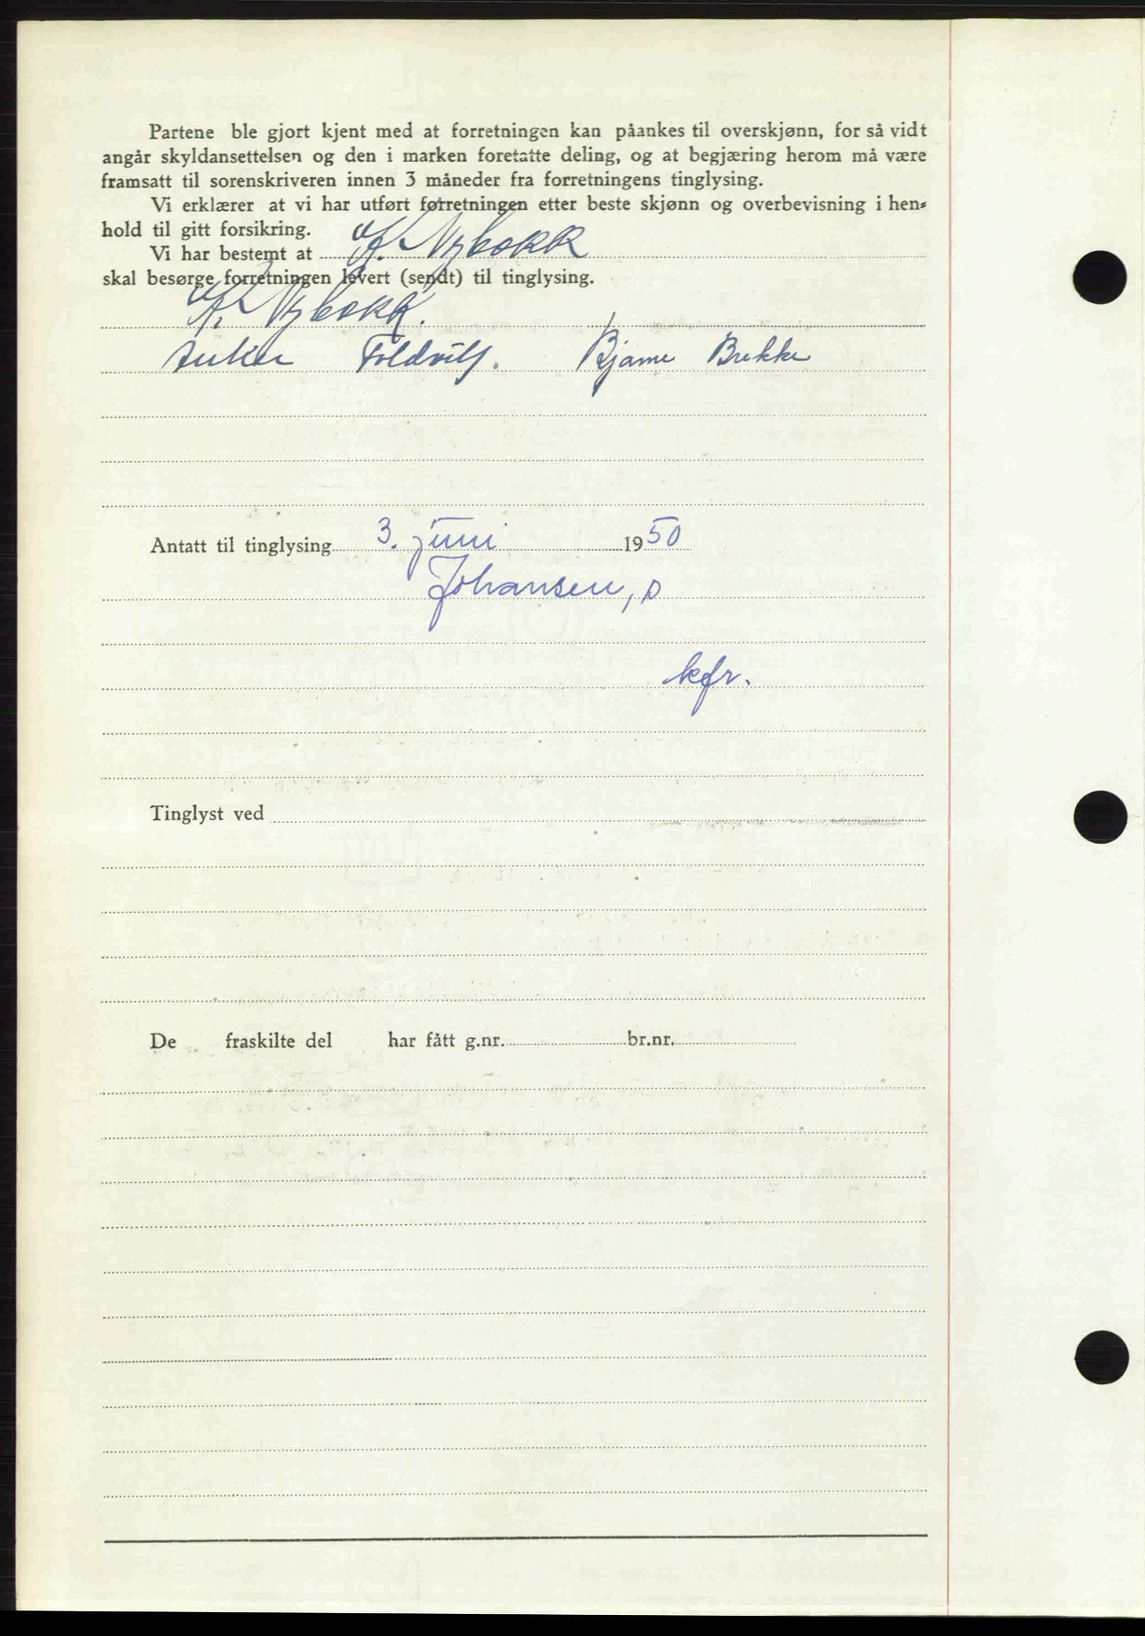 Partene ble gjort kjent med at forretningen kan påankes til overskjønn, for så vidt
angår skyldansettelsen og den i marken foretatte deling, og at begjæring herom må være
framsatt til sorenskriveren innen 3 måneder fra forretningens tinglysing.
Vi erklærer at vi har utført forretningen etter beste skjønn og overbevisning i hen-
hold til gitt forsikring.
Vi har bestemt at A. Nybakk
skal besørge forretningen levert (sendt) til tinglysing.
A. Nybakk.
Anker Foldvik. Bjarne Brekke
Antatt til tinglysing 3. juni 1950
Johansen,
kfr.
Tinglyst ved
De fraskilte del har fått g.nr. br.nr.